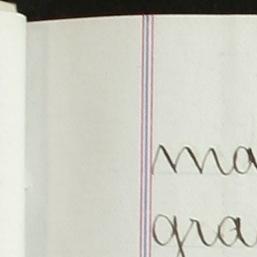 ma
gra